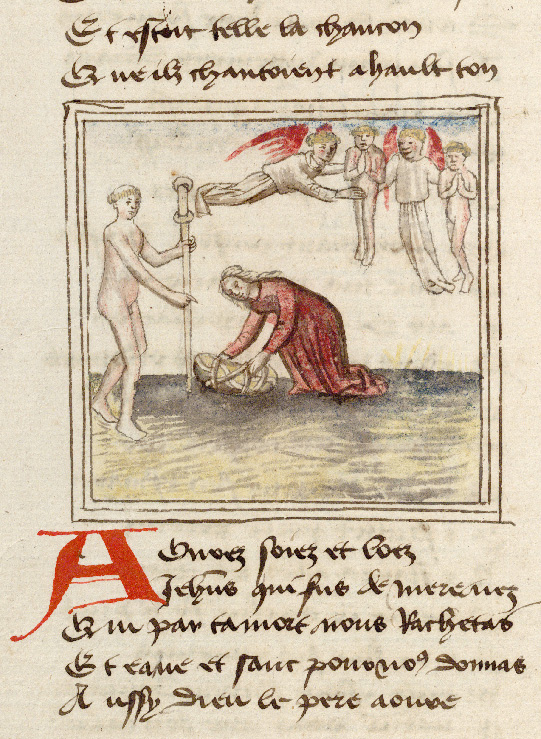 Et estoit telle la chancon
Que ilz chantoient a hault ton
Aourez soiez et loez
Jehus qui fus de mere nez
Qui par ta mort nous Rachetas
Et eaue et sanc pour nos donnas
Aussy dieu le pere aoure